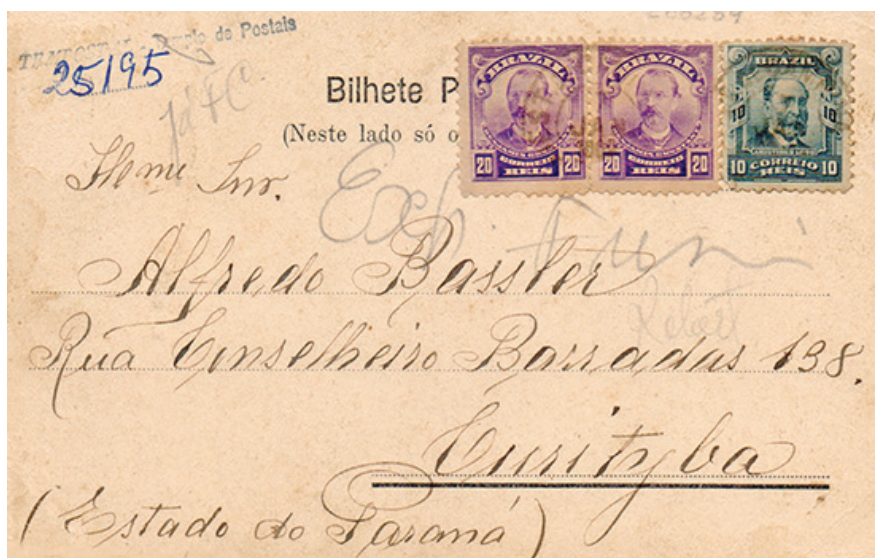 TEMPOSTAL - Museu de Postais
25/95
Já FC
Bilhete P
(Neste lado só o
BRAZIL
20 CORREIO 20
REIS
BRAZIL
20 CORREIO 20
REIS
BRAZIL
10 10
10 CORREIO 10
REIS
Illmo Snr.
Alfredo Bassler
Rua Conselheiro Barradas 138.
Curityba
(Estado do Paraná)